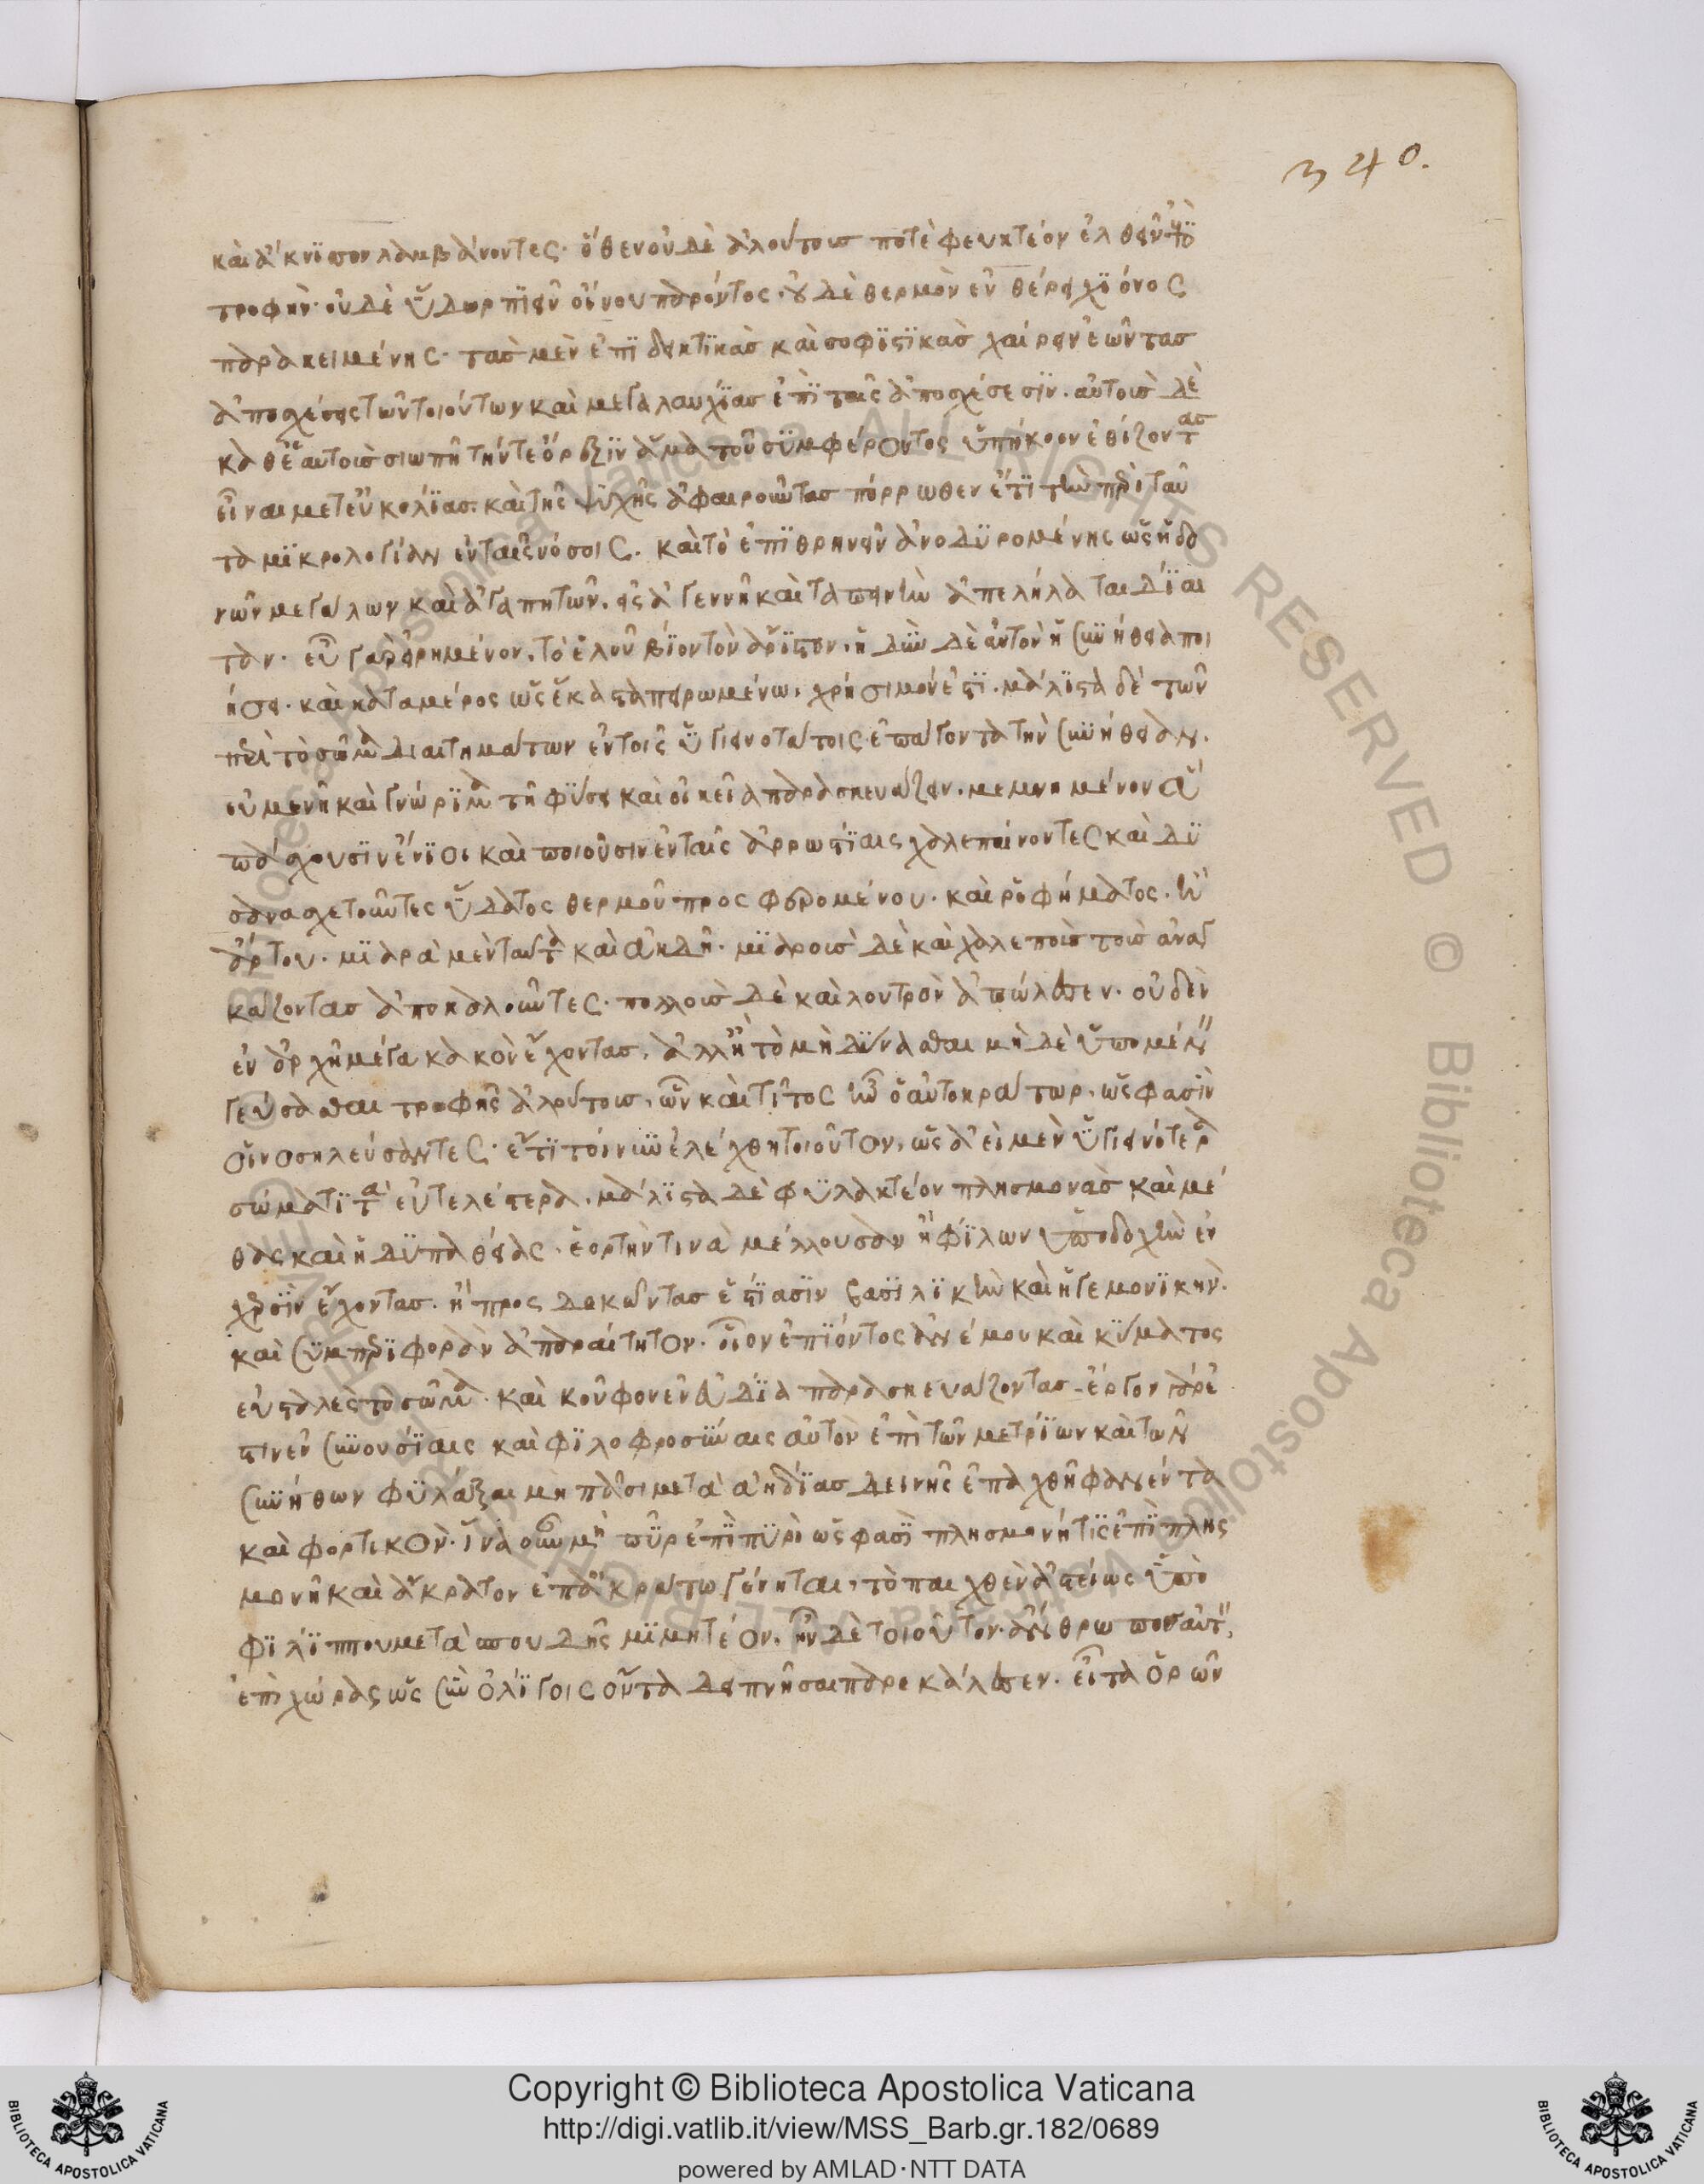 340.
καὶ ἀκνϊστον λαμβάνοντες· ὅθεν οὐδὲ ἀλούτοισ ποτὲ φευκτέον ἐλθεῖν ἐπὶ
τροφὴν· οὐδὲ ὕδωρ πϊεῖν οἴνου παρόντος· οὐδὲ θερμὸν ἐν θέρει χϊόνος
παρακειμένης· τασ μὲν ἐπϊδεικτϊκὰσ καὶ σοφϊστϊκὰσ χαίρειν ἐῶντασ
ἀποσχέσεις τῶν τοιούτων καὶ μεγαλαυχϊασ ἐπὶ ταῖς ἀποσχέσεσϊν· αὐτοισ δὲ
καθ' ἑαυτοισ σιωπῆ τήν τε ὄρεξϊν ἅμα τοῦ συμφέροντος ὑπήκοον ἐθίζοντας
εἶναι μετ' εὐκολίασ· καὶ τῆς ψϋχῆς ἀφαιροῦντασ πόρρωθεν ἔτϊ τὴν περὶ ταῦ
τα μϊκρολογίαν ἐν ταῖς νόσοις· καὶ τὸ ἐπϊθρηνεῖν ἀνοδϋρομένης ὡς ἡδο
νῶν μεγάλων καὶ ἀγαπητῶν· εἰς ἀγεννῆ καὶ ταπεινὴν ἀπελήλαται δίαι
ταν· εὖ γὰρ εἰρημένον, τὸ ἑλοῦ βίον τὸν ἄρϊστον· ἡδὺν δὲ αὐτὸν ἡ συνήθεια ποι
ήσει· καὶ κατα μέρος ὡς ἕκαστα πειρωμένω, χρήσιμόν ἐστϊ· μάλϊστα δὲ τῶν
περὶ τὸ σῶμα διαιτημάτων ἐν τοῖς ὑγιεινοτάτοις ἐπάγοντα τὴν συνήθειαν·
εὐμενῆ καὶ γνώρϊμα τῆ φϋσει καὶ οἰκεῖα παρασκευάζειν· μεμνημένον ἃ
πάσχουσϊν ἔνϊοι καὶ ποιοῦσιν ἐν ταῖς ἀρρωστίαις χαλεπαίνοντες καὶ δϋ
σανασχετοῦντες ὕδατος θερμοῦ προσφερομένου· καὶ ροφήματος· ἢ
ἄρτου· μϊαρὰ μὲν ταῦτα καὶ ἀηδῆ· μϊαροισ δὲ καὶ χαλεποισ τοισ ἀναγ
κάζοντασ ἀποκαλοῦντες· πολλοισ δὲ καὶ λουτρὸν ἀπώλεσεν· οὐδὲν
ἐν ἀρχῆ μέγα κακὸν ἔχοντας, ἀλλ' ἢ τὸ μὴ δύνασθαι μὴ δὲ ὑπομένειν
γεύσασθαι τροφῆς ἀλούτοισ, ὧν καὶ τίτος ἦν ὁ αὐτοκράτωρ, ὥς φασϊν
οἱ νοσηλεύσαντες· ἔτϊ τοίνυν ἐλέχθη τοιοῦτον, ὡς ἀεὶ μὲν ὑγιεινότερα
σώματϊ τὰ εὐτελέστερα, μάλϊστα δὲ φϋλακτέον πλησμονὰσ καὶ μέ
θας καὶ ἡδϋπαθείας, ἑορτήν τινὰ μέλλουσαν ἢ φίλων ὑποδοχὴν ἐν
χερσϊν ἔχοντασ· ἢ προσδοκῶντασ ἑστϊασϊν βασϊλϊκὴν καὶ ἡγεμονϊκὴν·
καὶ συμπεριφορὰν ἀπαραίτητον· οἷον ἐπϊόντος ἀνέμου καὶ κϋματος
εὐσταλὲς τὸ σῶμα· καὶ κοῦφον ἐν εὐδϊα παρασκευάζοντασ· ἔργον γάρ ἐ
στιν ἐν συνουσϊαις καὶ φϊλοφροσύναις αὐτὸν ἐπὶ τῶν μετρϊων καὶ τῶν
συνήθων φυλάξαι μὴ πᾶσι μετὰ ἀηδϊασ δεινῆς ἐπαχθῆ φανέντα
καὶ φορτικὸν· ἵνα οὖν μὴ πῦρ ἐπὶ πϋρὶ ὥς φασϊ πλησμονή τϊς ἐπὶ πλησ
μονῆ καὶ ἄκρατον ἐπ' ἀκράτω γένηται, τὸ παιχθὲν ἀστείως ὑπὸ
φϊλϊππου μετὰ σπουδῆς μϊμητέον, ἦν δὲ τοιοῦτον· ἄνθρωπος αὐτὸν
ἐπὶ χώρας ὡς σὺν ὀλϊγοις ὄντα δειπνῆσαι παρεκάλεσεν· εἶτα ὁρῶν
Copyright © Biblioteca Apostolica Vaticana
http://digi.vatlib.it/view/MSS_Barb.gr.182/0689
powered by AMLAD·NTT DATA
BIBLIOTECA APOSTOLICA VATICANA
BIBLIOTECA APOSTOLICA VATICANA